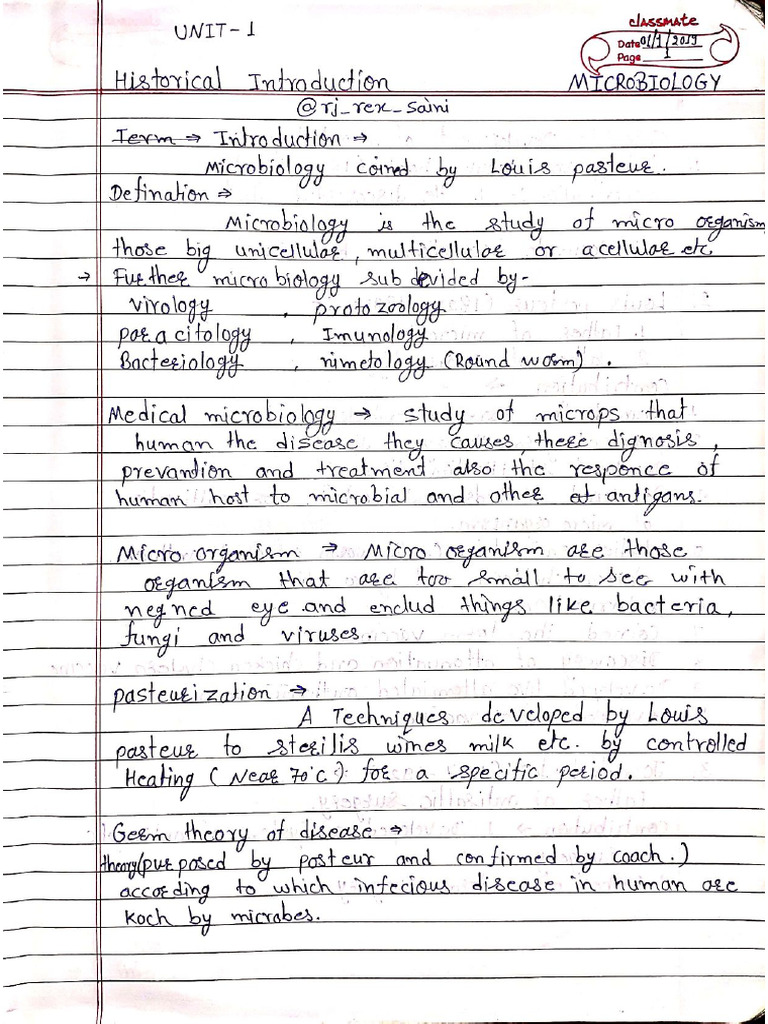 UNIT-1
classmate
Date 01/1/2019
Page 1
Historical Introduction MICROBIOLOGY
@rj_rex_saini
Term → Introduction →
Microbiology coined by Louis pasteur.
Defination →
Microbiology is the study of micro organism
those big unicellular, multicellular or acellular etc
→ Further microbiology sub devided by-
virology , protozoology
paracitology , Imunology
Bacteriology , nimetology (Round worm) .
Medical microbiology → study of microps that
human the disease they causes, there dignosis,
prevantion and treatment also the responce of
human host to microbial and other et antigans.
Micro organism → Micro organism are those
organism that are too small to see with
negned eye and enclud things like bacteria,
fungi and viruses.
pasteurization →
A Techniques developed by Louis
pasteur to sterilis wines milk etc. by controlled
Heating (Near 70°C) for a specific period.
Germ theory of disease →
theory (purposed by pasteur and confirmed by coach.)
according to which infecious disease in human are
koch by micrabes.